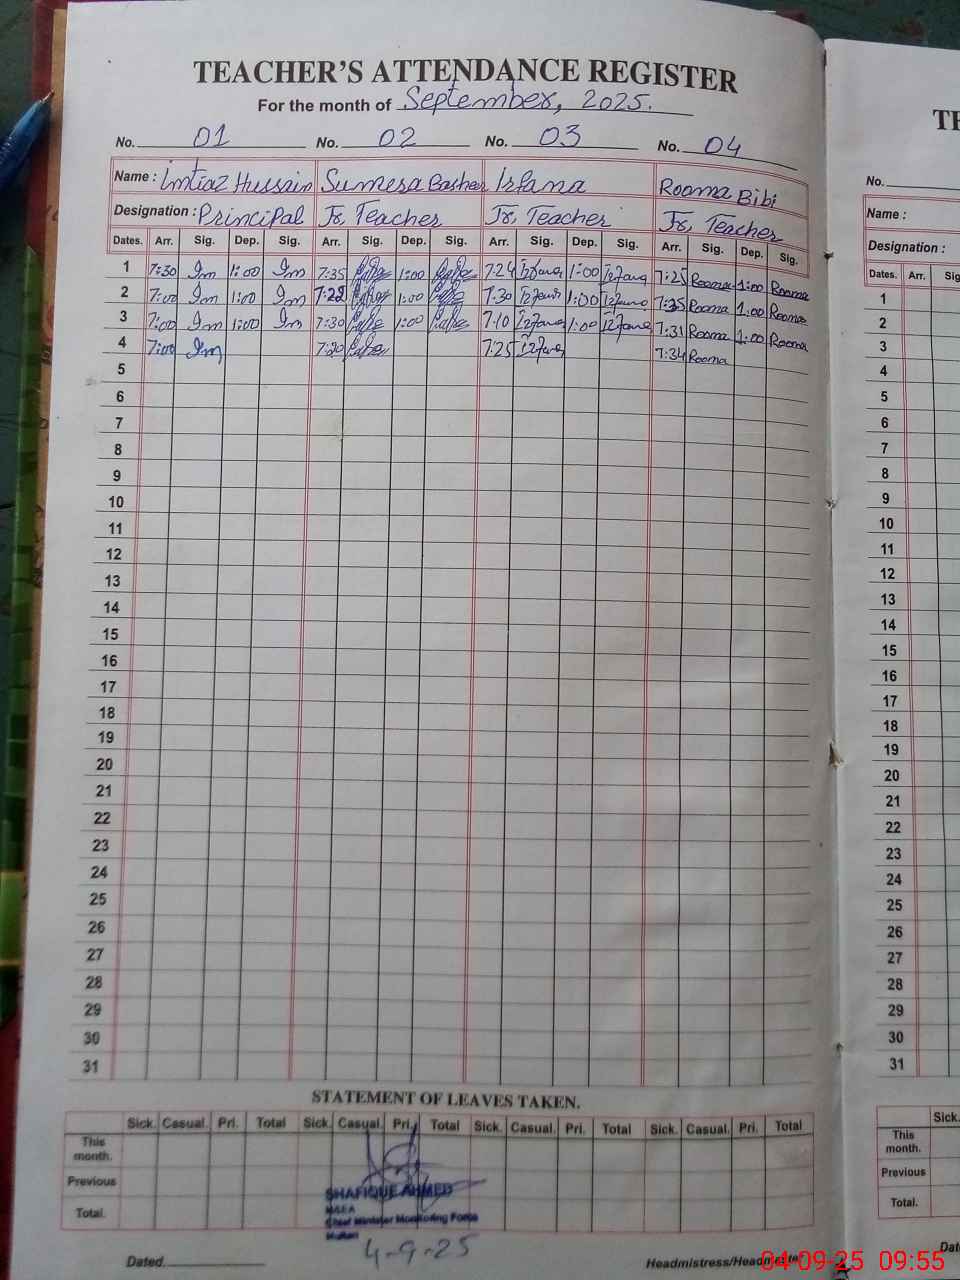 TEACHER'S ATTENDANCE REGISTER
For the month of September, 2025.
No. 01 No. 02 No. 03 No. 04
Name : Imtiaz Hussain Sumera Basheer Irfana Rooma Bibi
Designation : Principal Jr. Teacher Jr. Teacher Jr. Teacher
Dates. Arr. Sig. Dep. Sig. Arr. Sig. Dep. Sig. Arr. Sig. Dep. Sig. Arr. Sig. Dep. Sig.
1 7:30 Im 1:00 Im 7:35 1:00 7:24 Irfana 1:00 Irfana 7:25 Rooma 1:00 Rooma
2 7:00 Im 1:00 Im 7:22 1:00 7:30 Irfana 1:00 Irfana 7:35 Rooma 1:00 Rooma
3 7:00 Im 1:00 Im 7:30 1:00 7:10 Irfana 1:00 Irfana 7:31 Rooma 1:00 Rooma
4 7:00 Im 7:20 7:25 Irfana 7:34 Rooma
5
6
7
8
9
10
11
12
13
14
15
16
17
18
19
20
21
22
23
24
25
26
27
28
29
30
31
STATEMENT OF LEAVES TAKEN.
Sick. Casual. Pri. Total Sick. Casual. Pri. Total Sick. Casual. Pri. Total Sick. Casual. Pri. Total
This month.
Previous
Total.
SHAFIQUE AHMED
M.E.A
Chief Minister Monitoring Force
Multan
4-9-25
Dated. Headmistress/Headmaster
TE
No.
Name :
Designation :
Dates. Arr. Sig
1
2
3
4
5
6
7
8
9
10
11
12
13
14
15
16
17
18
19
20
21
22
23
24
25
26
27
28
29
30
31
Sick.
This month.
Previous
Total.
Dat
04-09-25 09:55